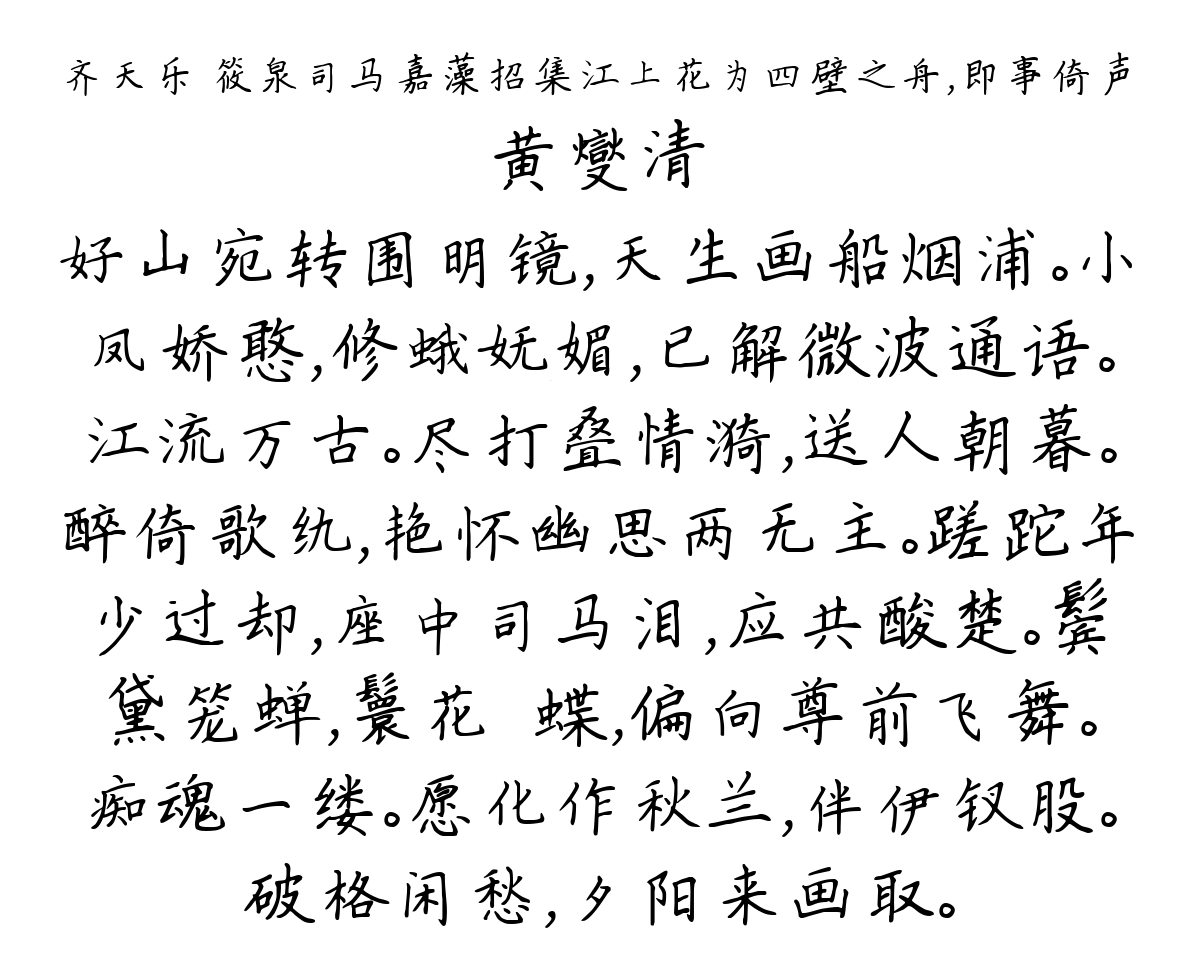 齐天乐 筱泉司马嘉藻招集江上花为四壁之舟,即事倚声
黄燮清
好山宛转围明镜,天生画船烟浦。小
凤娇憨,修蛾妩媚,已解微波通语。
江流万古。尽打叠情漪,送人朝暮。
醉倚歌纨,艳怀幽思两无主。蹉跎年
少过却,座中司马泪,应共酸楚。鬓
黛笼蝉,鬟花 蝶,偏向尊前飞舞。
痴魂一缕。愿化作秋兰,伴伊钗股。
破格闲愁,夕阳来画取。